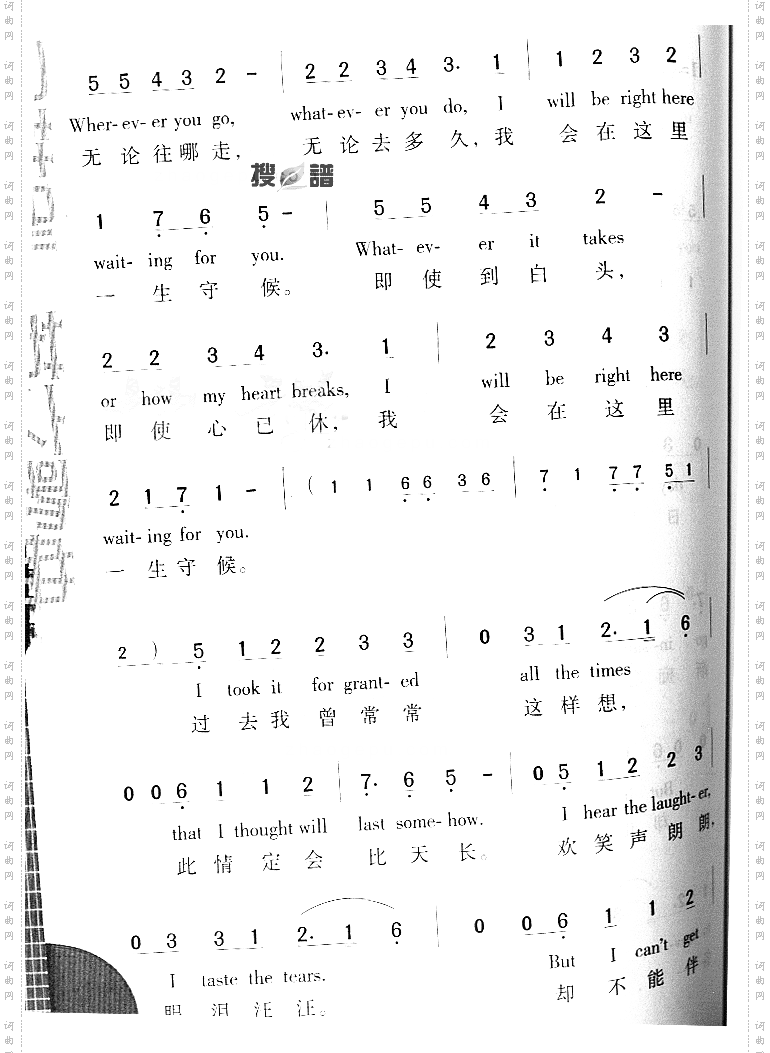 5 5 4 3 2 - | 2 2 3 4 3· 1 | 1 2 3 2 |
Wher- ev- er you go, what- ev- er you do, I will be right here
无 论 往 哪 走， 无 论 去 多 久，我 会 在 这 里
搜 譜
1 7 6 5 - | 5 5 4 3 2 - |
wait- ing for you. What- ev- er it takes
一 生 守 候。 即 使 到 白 头，
2 2 3 4 3· 1 | 2 3 4 3 |
or how my heart breaks, I will be right here
即 使 心 已 休，我 会 在 这 里
2 1 7 1 - | ( 1 1 6 6 3 6 | 7 1 7 7 5 1 |
wait- ing for you.
一 生 守 候。
2 ) 5 1 2 2 3 3 | 0 3 1 2· 1 6 |
I took it for grant- ed all the times
过 去 我 曾 常 常 这 样 想，
0 0 6 1 1 2 | 7· 6 5 - | 0 5 1 2 2 3 |
that I thought will last some- how. I hear the laught- er,
此 情 定 会 比 天 长。 欢 笑 声 朗 朗，
0 3 3 1 2· 1 6 | 0 0 6 1 1 2 |
I taste the tears. But I can't get
眼 泪 汪 汪。 却 不 能 伴
词曲网